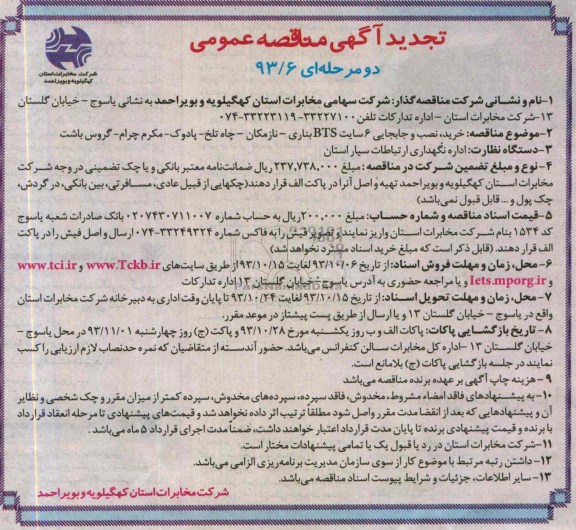 تجدید آگهی مناقصه عمومی
دو مرحله‌ای ۹۳/۶
شرکت مخابرات استان
کهگیلویه و بویراحمد
۱-نام و نشانی شرکت مناقصه‌گذار: شرکت سهامی مخابرات استان کهگیلویه و بویراحمد به نشانی یاسوج - خیابان گلستان
۱۳-شرکت مخابرات استان - اداره تدارکات تلفن ۳۳۲۲۷۱۰۰-۳۳۲۲۳۱۱۹-۰۷۴
۲-موضوع مناقصه: خرید، نصب و جابجایی ۶ سایت BTS بناری - نازمکان - چاه تلخ- پادوک- مکرم چرام- گروس باشت
۳-دستگاه نظارت: اداره نگهداری ارتباطات سیار استان
۴- نوع و مبلغ تضمین شرکت در مناقصه : مبلغ ۲۳۷,۷۳۸,۰۰۰ ریال ضمانت‌نامه معتبر بانکی و یا چک تضمینی در وجه شرکت
مخابرات استان کهگیلویه و بویراحمد تهیه و اصل آنرا در پاکت الف قرار دهند(چکهایی از قبیل عادی، مسافرتی، بین بانکی، در گردش،
چک پول و ... قابل قبول نمی‌باشد)
۵-قیمت اسناد مناقصه و شماره حساب: مبلغ ۲۰۰,۰۰۰ ریال به حساب شماره ۰۲۰۷۴۳۰۷۱۱۰۰۷ بانک صادرات شعبه یاسوج
کد ۱۵۳۴ بنام شرکت مخابرات استان واریز نمایند و تصویر فیش را به فاکس شماره ۳۳۲۴۹۳۲۴-۰۷۴ ارسال و اصل فیش را در پاکت
الف قرار دهند. (قابل ذکر است که مبلغ خرید اسناد مسترد نخواهد شد)
۶- محل، زمان و مهلت فروش اسناد: از تاریخ ۹۳/۱۰/۰۶ لغایت ۹۳/۱۰/۱۵ از طریق سایت‌های www.Tckb.ir و www.tci.ir
و Iets.mporg.ir و یا مراجعه حضوری به آدرس یاسوج - خیابان گلستان ۱۳ اداره تدارکات
۷- محل، زمان و مهلت تحویل اسناد: از تاریخ ۹۳/۱۰/۱۵ لغایت ۹۳/۱۰/۲۴ تا پایان وقت اداری به دبیرخانه شرکت مخابرات استان
واقع در یاسوج - خیابان گلستان ۱۳ و یا ارسال از طریق پست پیشتاز در موعد مقرر.
۸- تاریخ بازگشایی پاکات: پاکات الف و ب روز یکشنبه مورخ ۹۳/۱۰/۲۸ و پاکت (ج) روز چهارشنبه ۹۳/۱۱/۰۱ در محل یاسوج -
خیابان گلستان ۱۳ -اداره کل مخابرات سالن کنفرانس می‌باشد. حضور آندسته از متقاضیان که نمره حدنصاب لازم ارزیابی را کسب
نمایند در جلسه بازگشایی پاکات (ج) بلامانع است.
۹- هزینه چاپ آگهی بر عهده برنده مناقصه می‌باشد
۱۰-به پیشنهادهای فاقد امضاء مشروط، مخدوش، فاقد سپرده، سپرده‌های مخدوش، سپرده کمتر از میزان مقرر و چک شخصی و نظایر
آن و پیشنهادهایی که بعد از انقضا مدت مقرر واصل شود مطلقا ترتیب اثر داده نخواهد شد و قیمت‌های پیشنهادی تا مرحله انعقاد قرارداد
با برنده و قیمت پیشنهادی برنده تا پایان مدت قرارداد اعتبار خواهند داشت، ضمناً مدت اجرای قرارداد ۵ ماه می‌باشد .
۱۱-شرکت مخابرات استان در رد یا قبول یک یا تمامی پیشنهادات مختار است.
۱۲-داشتن رتبه مرتبط با موضوع کار از سوی سازمان مدیریت برنامه‌ریزی الزامی می‌باشد.
۱۳- سایر اطلاعات، جزئیات و شرایط پیوست اسناد مناقصه می‌باشد.
شرکت مخابرات استان کهگیلویه و بویراحمد